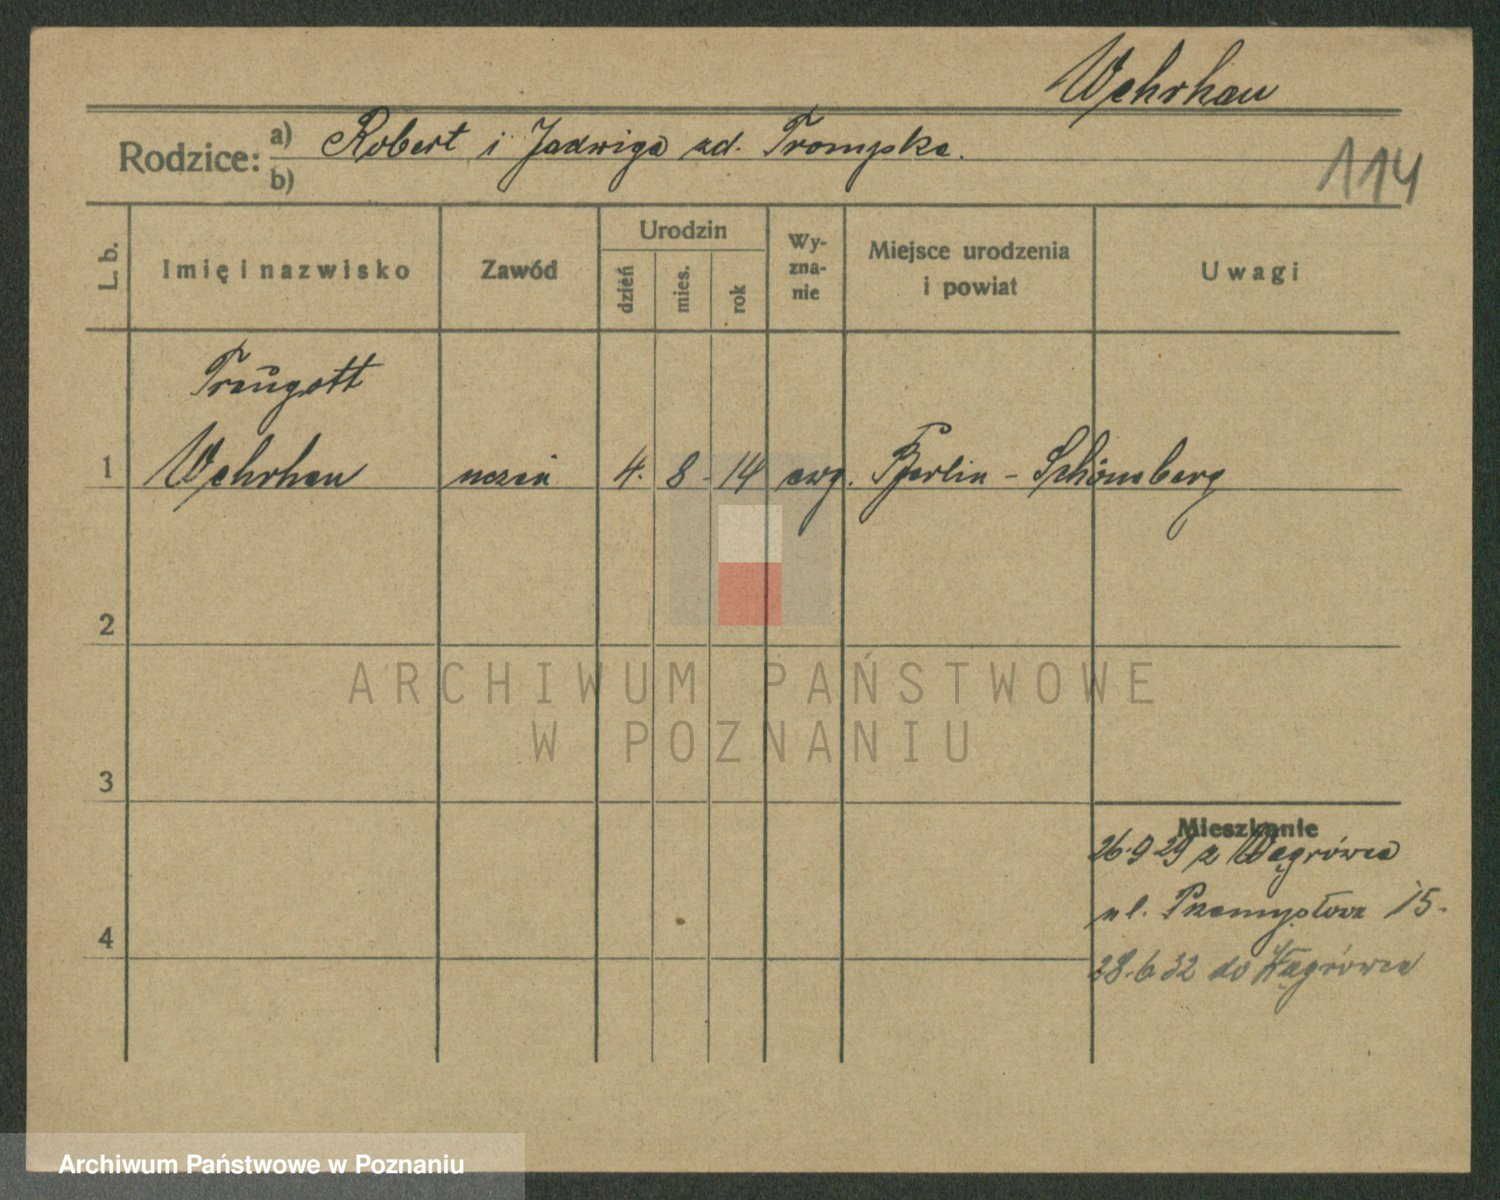 Wehrhan
Rodzice: a) Robert i Jadwiga zd. Trompke.
b)
114
L. b. Imię i nazwisko Zawód Urodzin dzień mies. rok Wy-zna-nie Miejsce urodzenia i powiat Uwagi
Traugott
1 Wehrhan uczeń 4. 8 - 14 ewg. Berlin - Schöneberg
2
ARCHIWUM PAŃSTWOWE
W POZNANIU
3
Mieszkanie
26.9 29 z Wągrówca
4 ul. Przemysłowa 15.
28.6 32 do Wągrówca
Archiwum Państwowe w Poznaniu